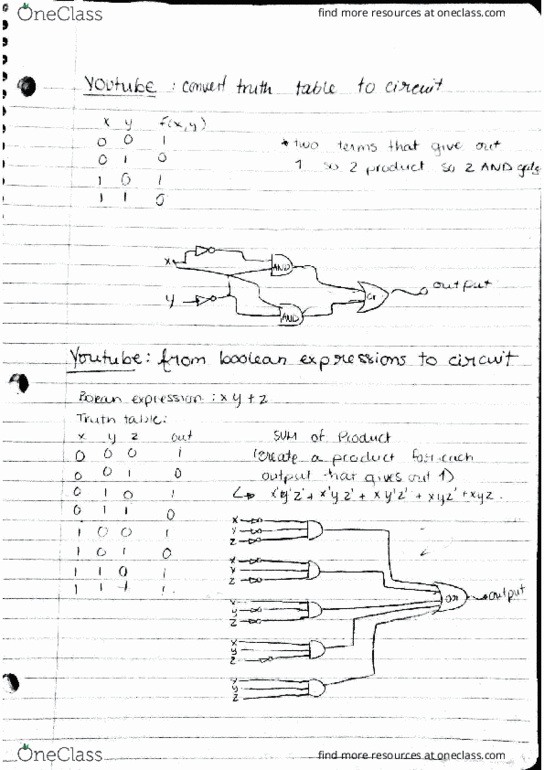 OneClass
find more resources at oneclass.com
Youtube : convert truth table to circuit
x y f(x,y)
0 0 1
0 1 0
1 0 1
1 1 0
* two terms that give out
1 so 2 product so 2 AND gate
x
AND
output
Or
y
AND
Youtube: from boolean expressions to circuit
Bolean expression : xy + z
Truth table:
x y z out
0 0 0 1
0 0 1 0
0 1 0 1
0 1 1 0
1 0 0 1
1 0 1 0
1 1 0 1
1 1 1 1
SUM of Product
(create a product for each
output that gives out 1)
↳ x'y'z' + x'yz' + xy'z' + xyz' + xyz.
x
y
z
x
y
z
Or
output
x
y
z
x
y
z
x
y
z
OneClass
find more resources at oneclass.com